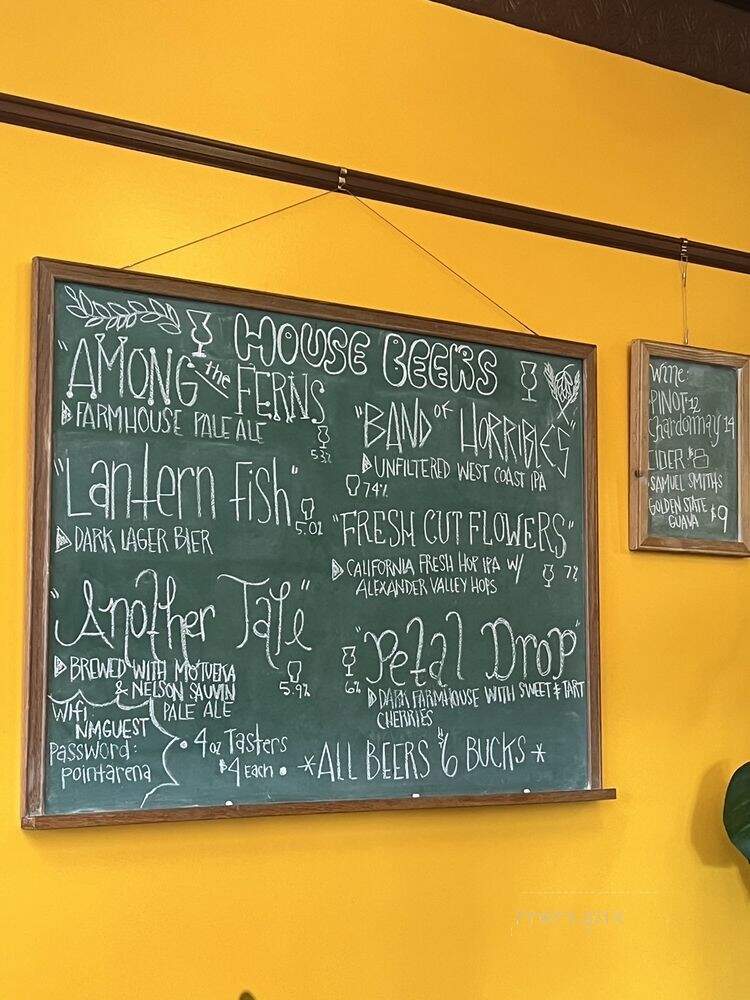 HOUSE BEERS
"AMONG the FERNS
FARMHOUSE PALE ALE
5.3%
"Lantern Fish"
DARK LAGER BIER
5.0%
"Another Tale"
BREWED WITH MOTUEKA
& NELSON SAUVIN
PALE ALE
5.9%
"BAND OF HORRIBLES"
UNFILTERED WEST COAST IPA
7.4%
"FRESH CUT FLOWERS"
CALIFORNIA FRESH HOP IPA W/
ALEXANDER VALLEY HOPS
7%
"Petal Drop"
6%
DARK FARMHOUSE WITH SWEET & TART
CHERRIES
Wifi
NMGUEST
Password:
pointarena
• 4oz Tasters
$4 Each •
*ALL BEERS $6 BUCKS*
Wine:
PINOT 12
Chardonnay 14
CIDER: $8
SAMUEL SMITHS
GOLDEN STATE
GUAVA $9